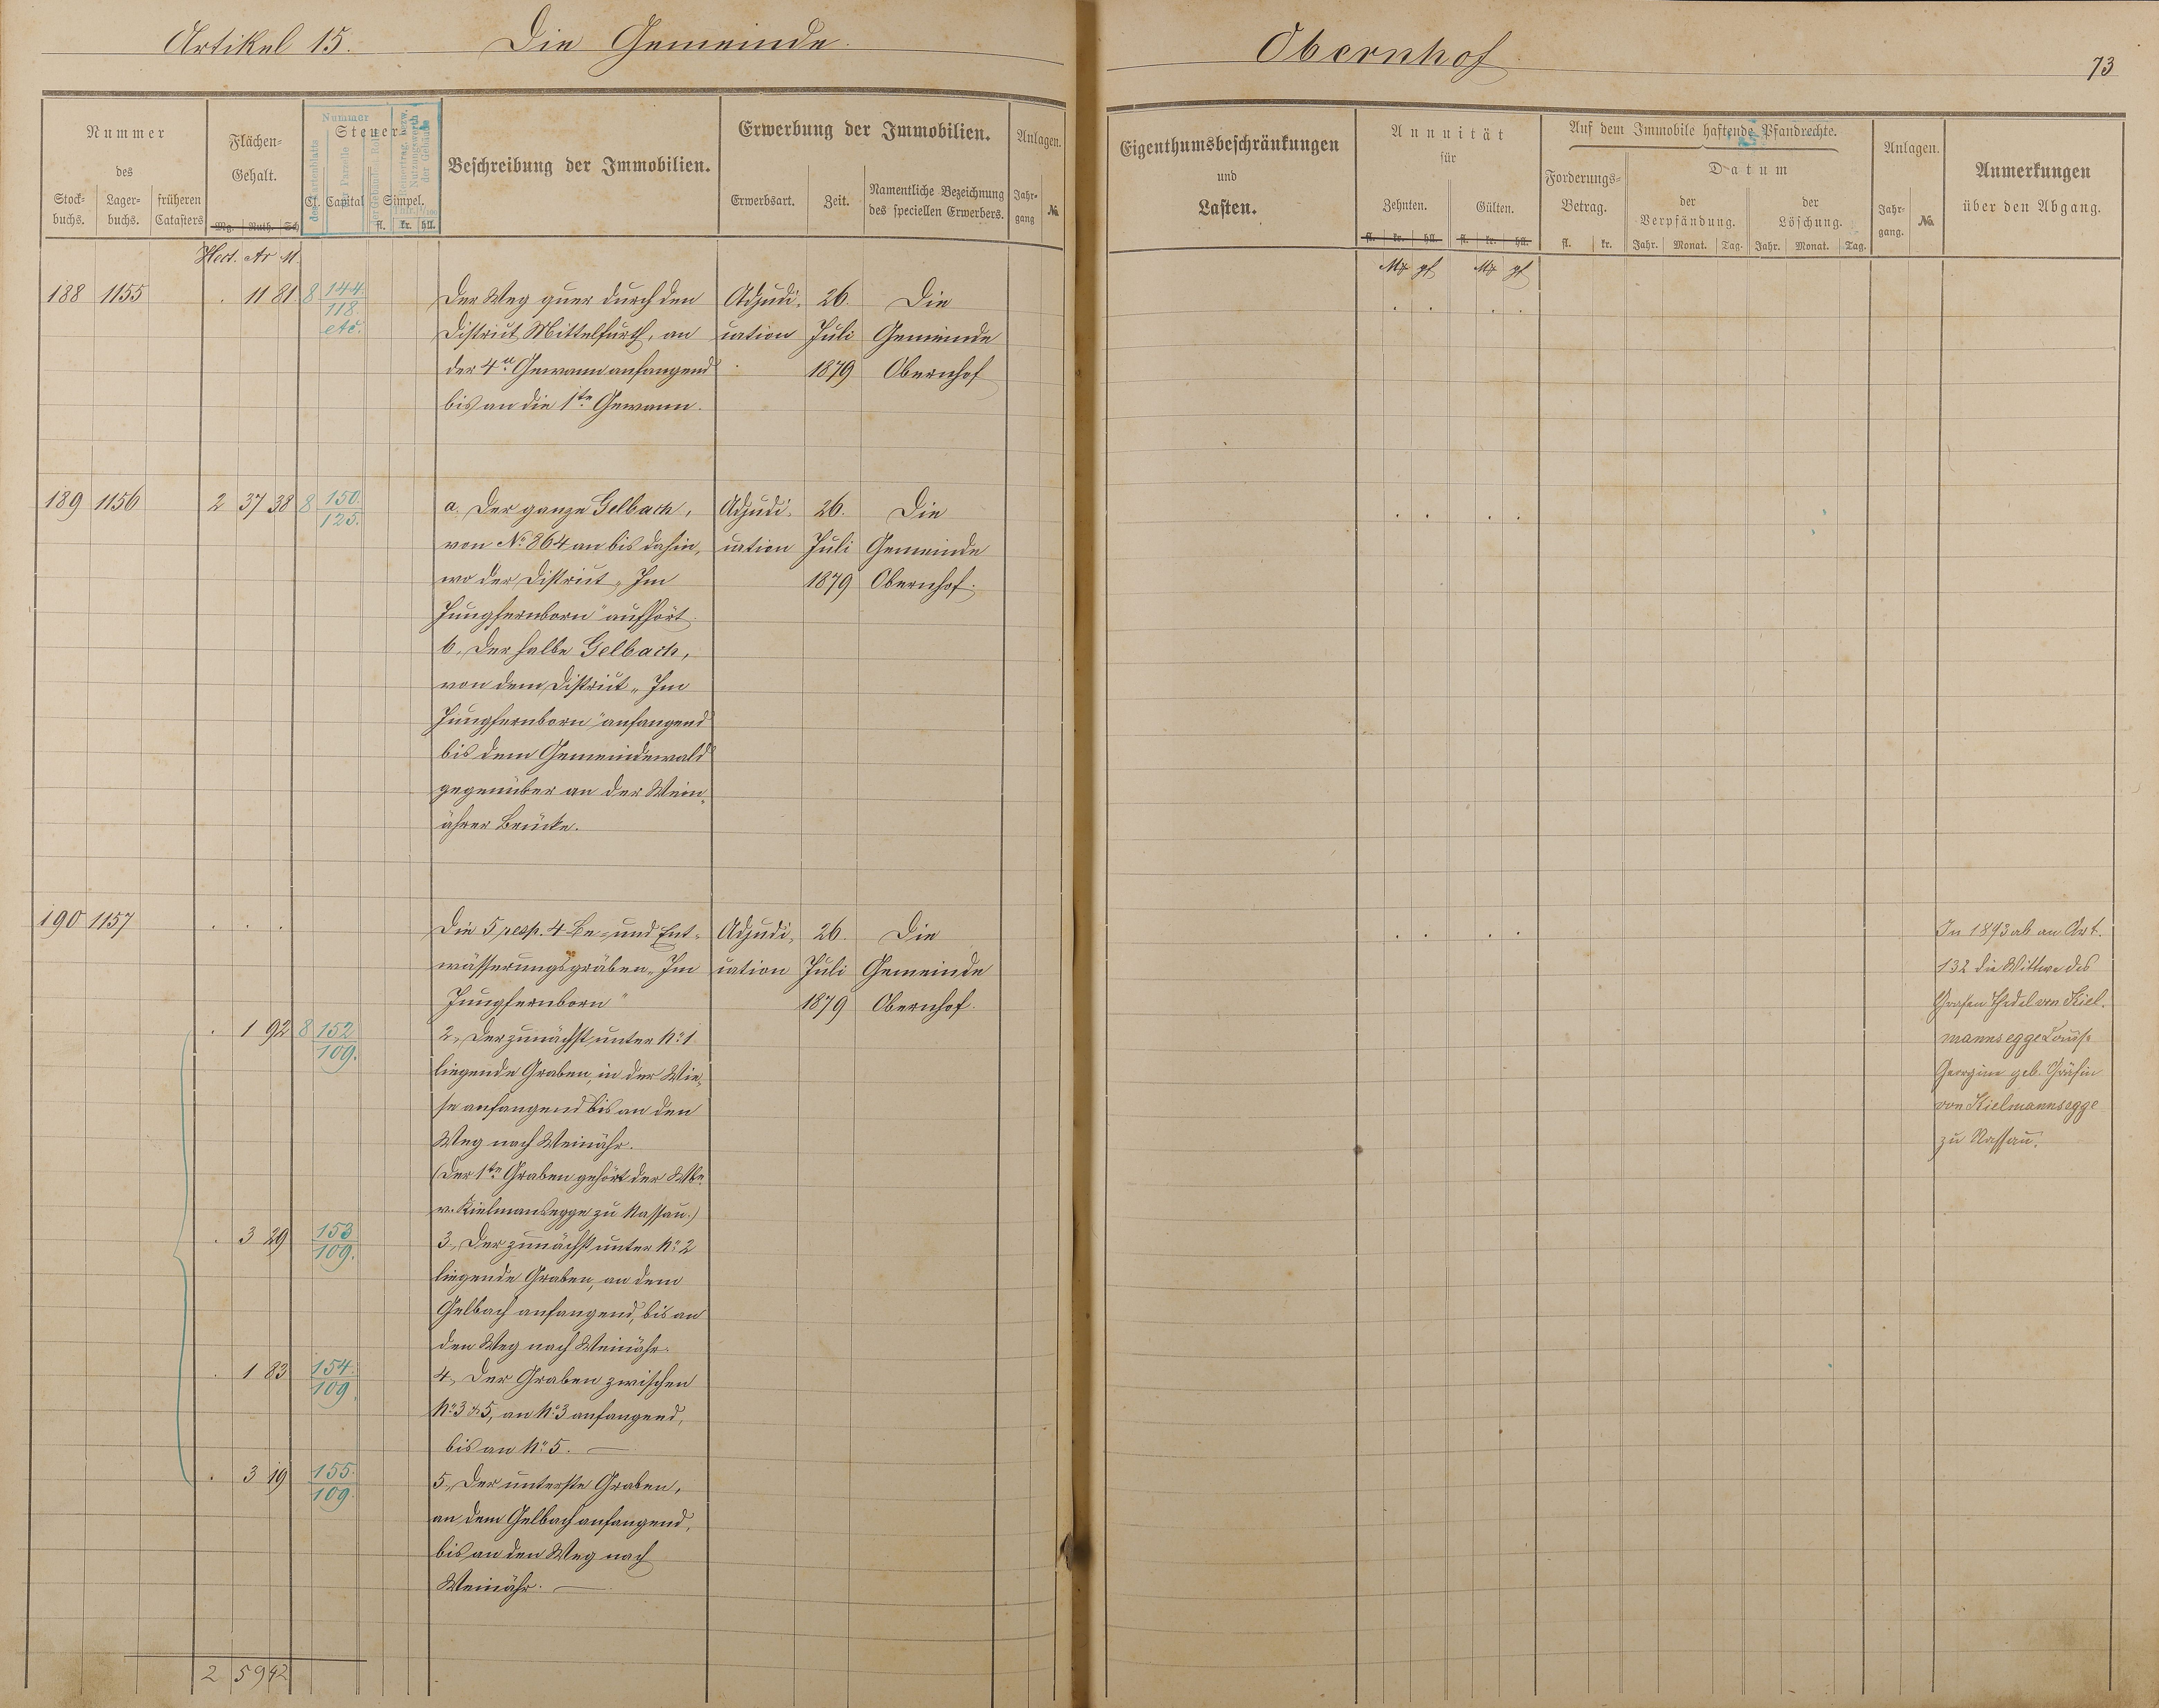 Artikel 15. Die Gemeinde Obernhof
73
Nummer des
Stock-buchs. Lager-buchs. früheren Catasters
Flächen-Gehalt.
Mg. Ruth. Sch.
Steuer-
Cl. Capital Simpel.
fl. kr. hll.
Nummer
Beschreibung der Immobilien.
Erwerbung der Immobilien.
Erwerbsart. Zeit. Namentliche Bezeichnung des speciellen Erwerbers.
Anlagen.
Jahr-gang №
Eigenthumsbeschränkungen
und
Lasten.
Annuität
für
Zehnten. Gülten.
fl. kr. hll. fl. kr. hll.
Auf dem Immobile haftende Pfandrechte.
Forderungs-Betrag.
fl. kr.
Datum
der Verpfändung. der Löschung.
Jahr. Monat. Tag. Jahr. Monat. Tag.
Anlagen.
Jahr-gang. №.
Anmerkungen
über den Abgang.
Hect. Ar M.
Mk pf Mk pf
188 1155 . 11 81 8 144. Der Weg quer durch den Adjudi- 26. Die
118. District Mittelfurth, an cation Juli Gemeinde
etc. der 4n Gewann anfangend 1879 Obernhof
bis an die 1te Gewann.
189 1156 2 37 38 8 150. a. Der ganze Gelbach, Adjudi- 26. Die
125. von No 864 an bis dahin, cation Juli Gemeinde
wo der District „Im 1879 Obernhof.
Jungfernborn" aufhört.
b. Der halbe Gelbach,
von dem District „Im
Jungfernborn" anfangend
bis dem Gemeindewald
gegenüber an der Wein-
ährer Brücke.
190 1157 . . . Die 5 resp. 4 Be- und Ent- Adjudi- 26. Die
wässerungsgräben „Im cation Juli Gemeinde
Jungfernborn" 1879 Obernhof.
. 1 92 8 152 2, Der zunächst unter No 1
109. liegende Graben, in der Wie-
se anfangend bis an den
Weg nach Weinähr.
(Der 1te Graben gehört der Wbe.
v. Kielmansegge zu Nassau.)
. 3 29 153 3, Der zunächst unter No 2
109. liegende Graben, an dem
Gelbach anfangend, bis an
den Weg nach Weinähr.
. 1 83 154. 4, Der Graben zwischen
109. No 3 & 5, an No 3 anfangend,
bis an No 5. —
. 3 19 155. 5, Der unterste Graben,
109. an dem Gelbach anfangend,
bis an den Weg nach
Weinähr. —
2 59 42
In 1893 ab an Art.
132 die Wittwe des
Grafen Thedel von Kiel-
mannsegge Louise
Georgine geb. Gräfin
von Kielmannsegge
zu Nassau.